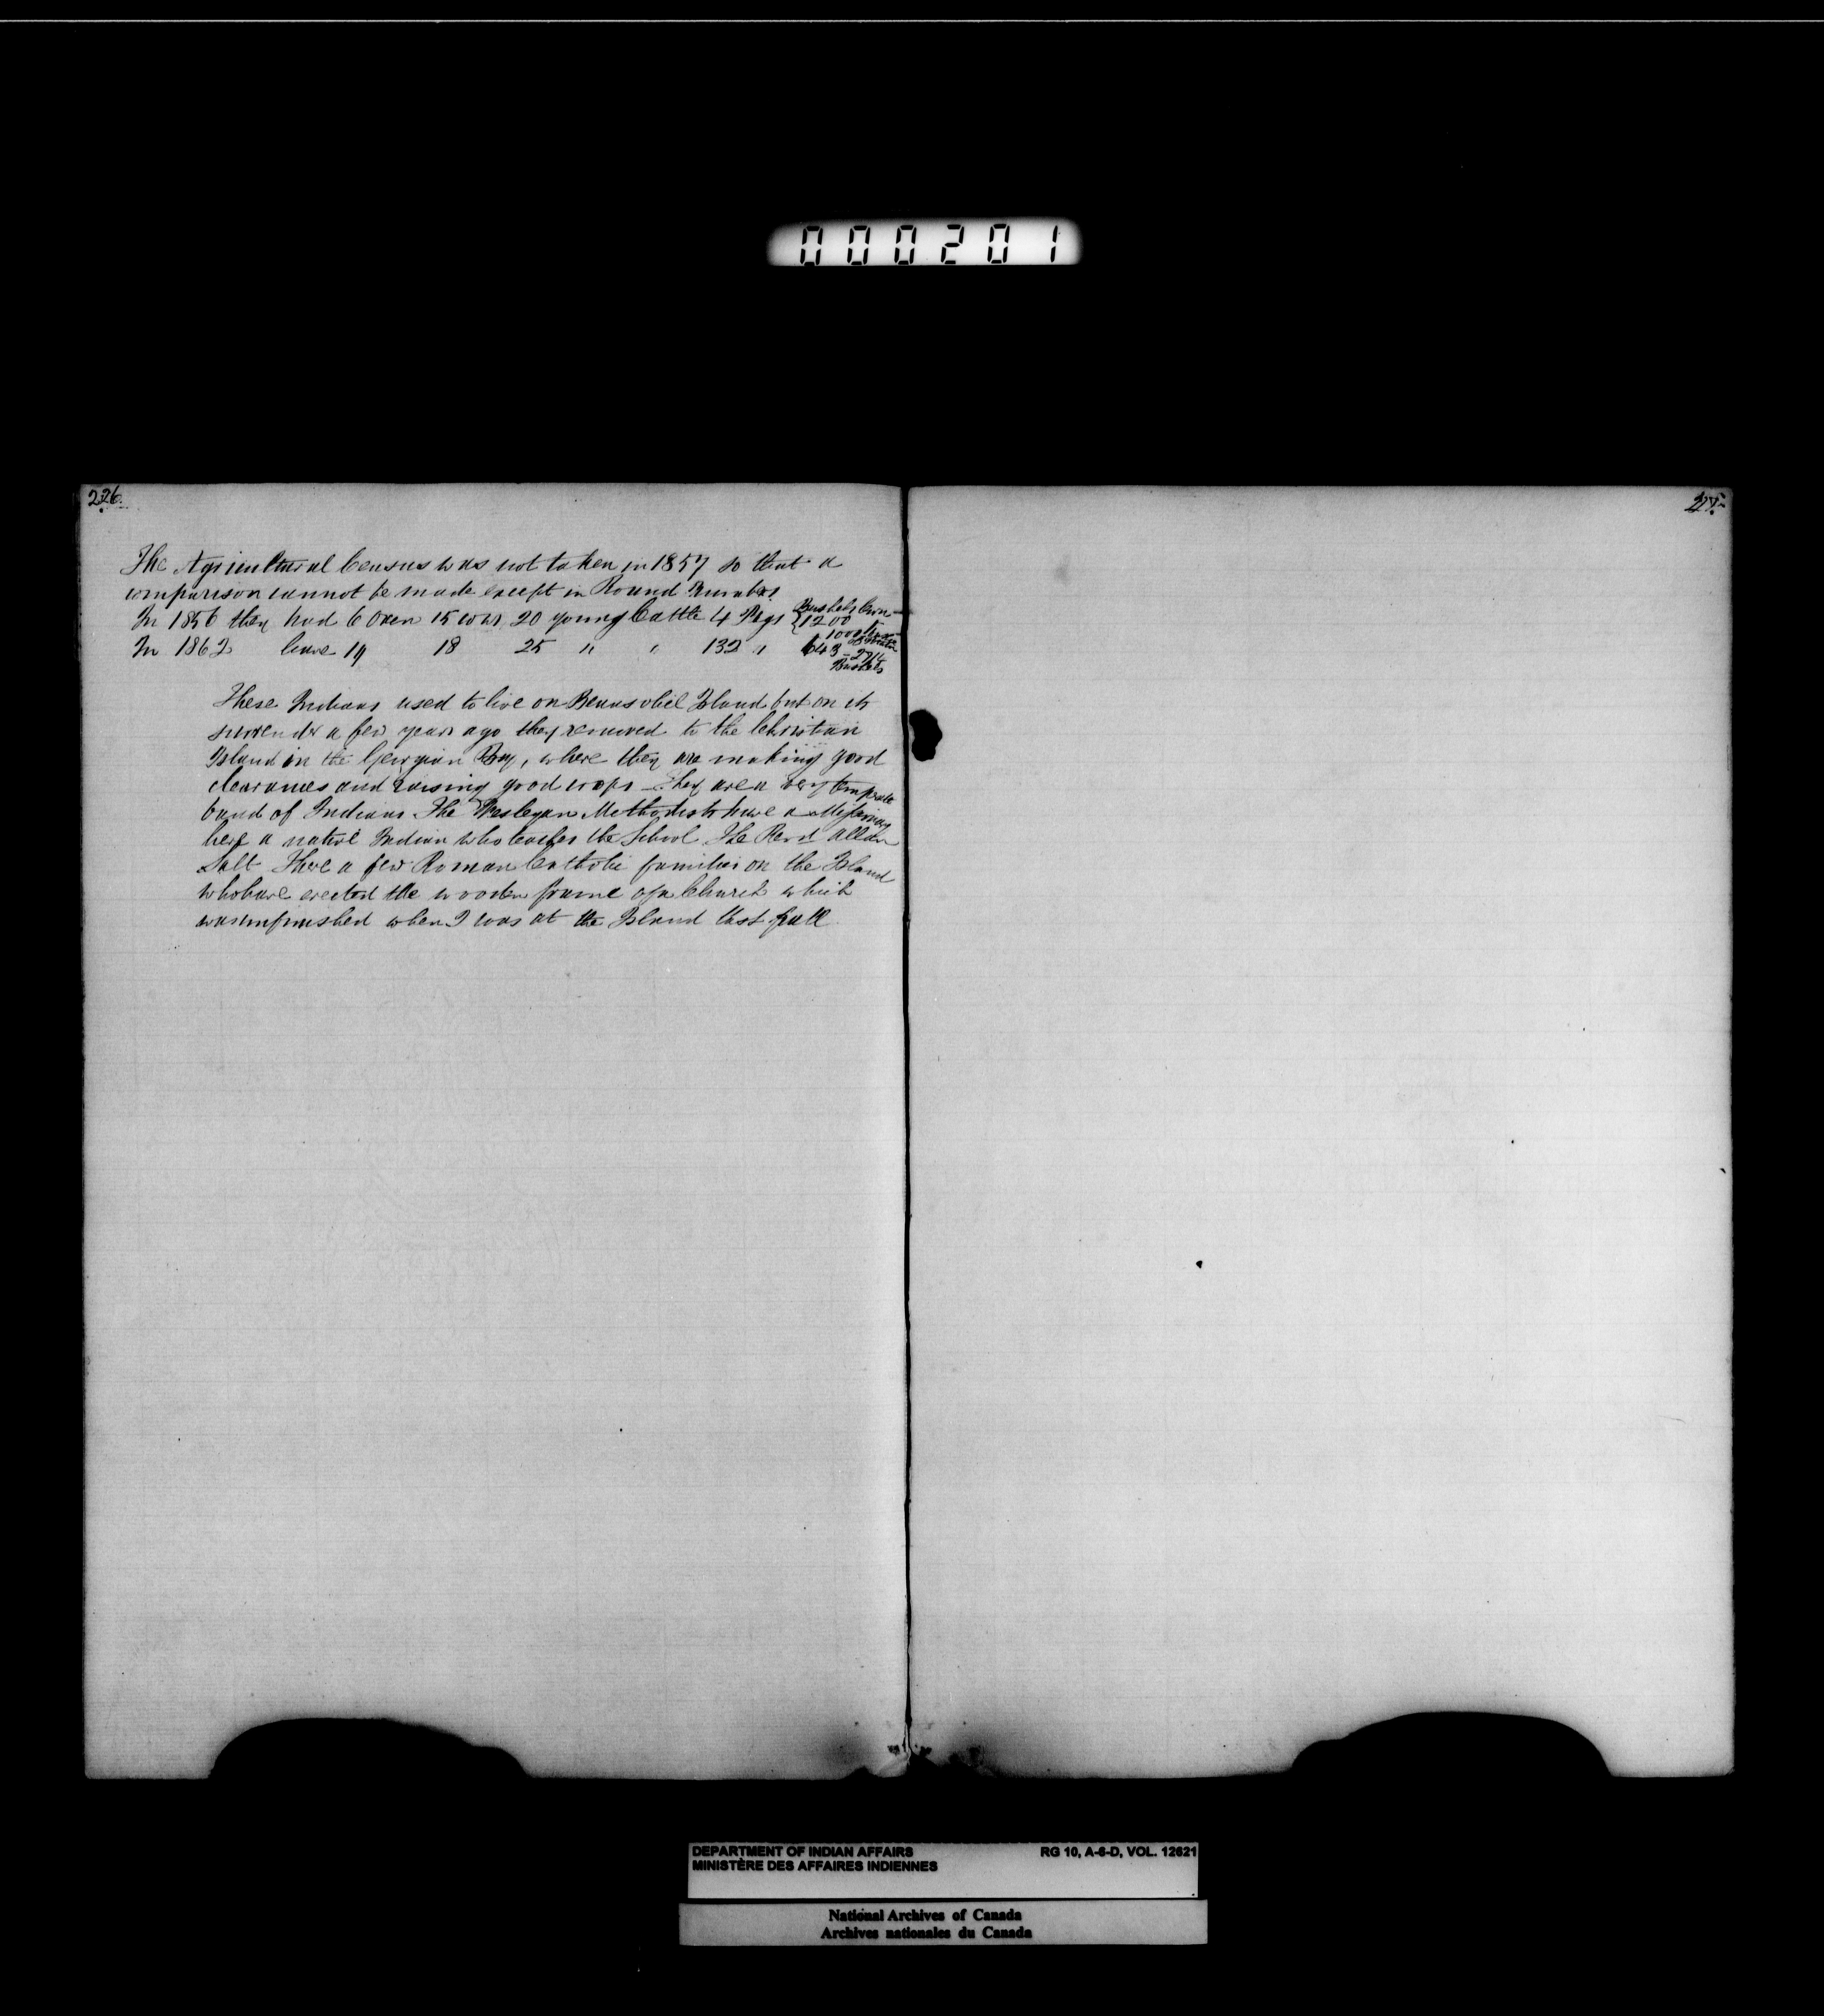 000201
226.
The Agricultural Census was not taken in 1857 so that a
comparison cannot be made except in Round Numbers
In 1856 they had 6 Oxen 15 cows 20 young Cattle 4 Pigs { Bushels Corn
1200
1000
In 1862 have 19 18 25 " " 132 " 643 - 2714
Bushels
These Indians used to live on Beausoliel Island but on its
surrender a few years ago they removed to the Christian
Island in the Georgian Bay, where they are making good
clearances and raising good crops – They are a very temperate
band of Indians The Wesleyan Methodists have a Missionary
here a native Indian who teaches the School The Revd Allan
Salt There a few Roman Catholic families on the Island
who have erected the wooden frame of a Church which
was unfinished when I was at the Island last fall
227
DEPARTMENT OF INDIAN AFFAIRS RG 10, A-6-D, VOL. 12621
MINISTÈRE DES AFFAIRES INDIENNES
National Archives of Canada
Archives nationales du Canada